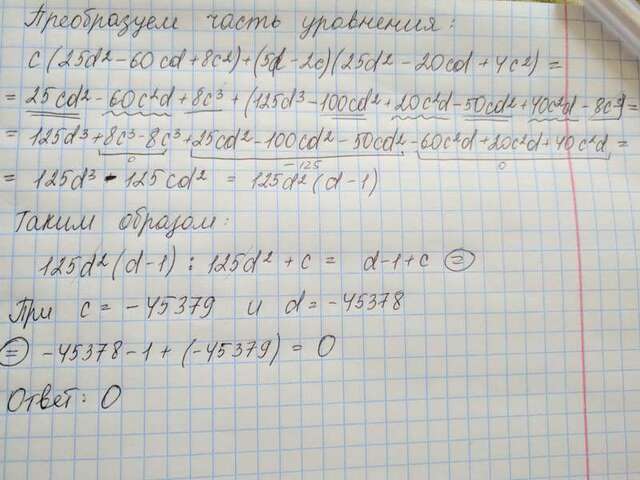 Преобразуем часть уравнения:
c(25d²-60cd+8c²)+(5d-2c)(25d²-20cd+4c²)=
=25cd²-60c²d+8c³+(125d³-100cd²+20c²d-50cd²+40c²d-8c³)=
=125d³+8c³-8c³+25cd²-100cd²-50cd²-60c²d+20c²d+40c²d=
0 -125 0
=125d³-125cd²=125d²(d-1)
Таким образом:
125d²(d-1):125d²+c=d-1+c=
При c=-45379 и d=-45378
=-45378-1+(-45379)=0
Ответ: 0